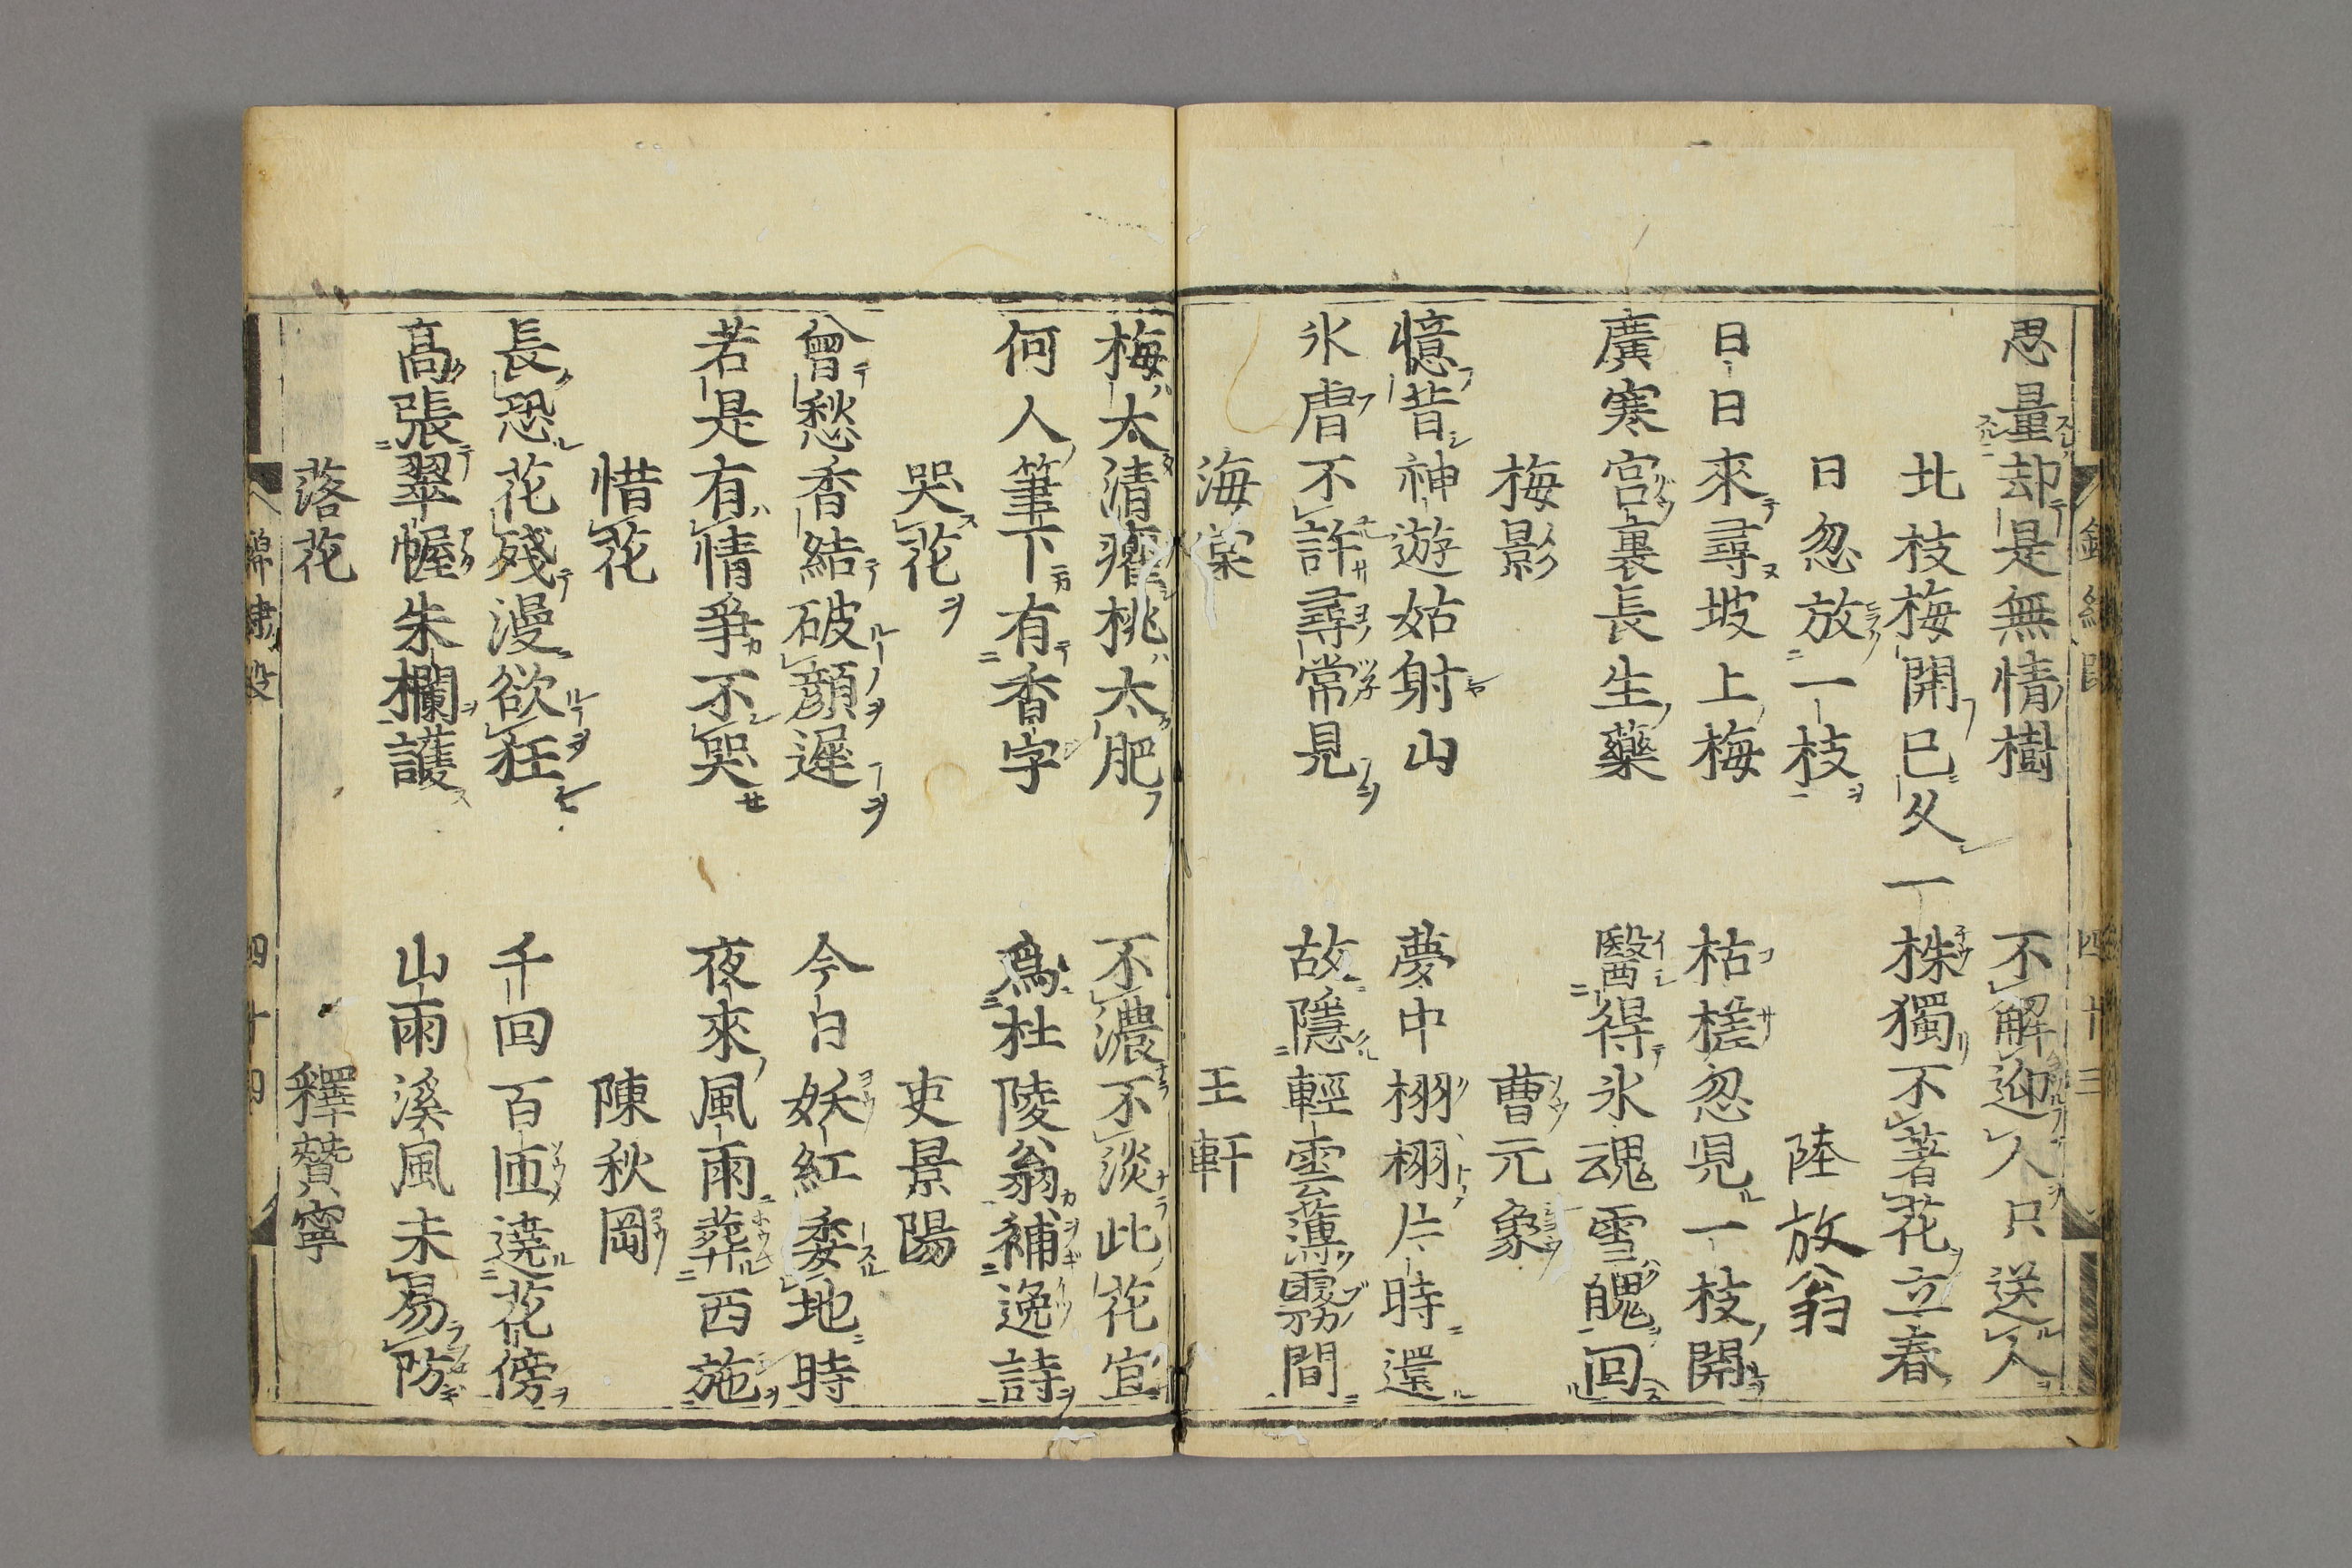 思量却是無情樹　不解迎人只送人
北枝梅開已久一株獨不著花立春
日忽放一枝　陸放翁
日日來尋坡上梅　枯槎忽見一枝開
廣寒宮裏長生藥　醫得氷魂雪魄回
梅影　曹元象
憶昔神遊姑射山　夢中栩栩片時還
氷膚不許尋常見　故隱輕雲薄霧間
海棠　王軒
梅太清癯桃太肥　不濃不淡此花宜
何人筆下有香字　為杜陵翁補逸詩
哭花　吏景陽
曾愁香結破顔遲　今日妖紅委地時
若是有情爭不哭　夜來風雨葬西施
惜花　陳秋岡
長恐花殘漫欲狂　千回百匝遶花傍
高張翠幄朱欄護　山雨溪風未易防
落花　釋贊寧
四十四